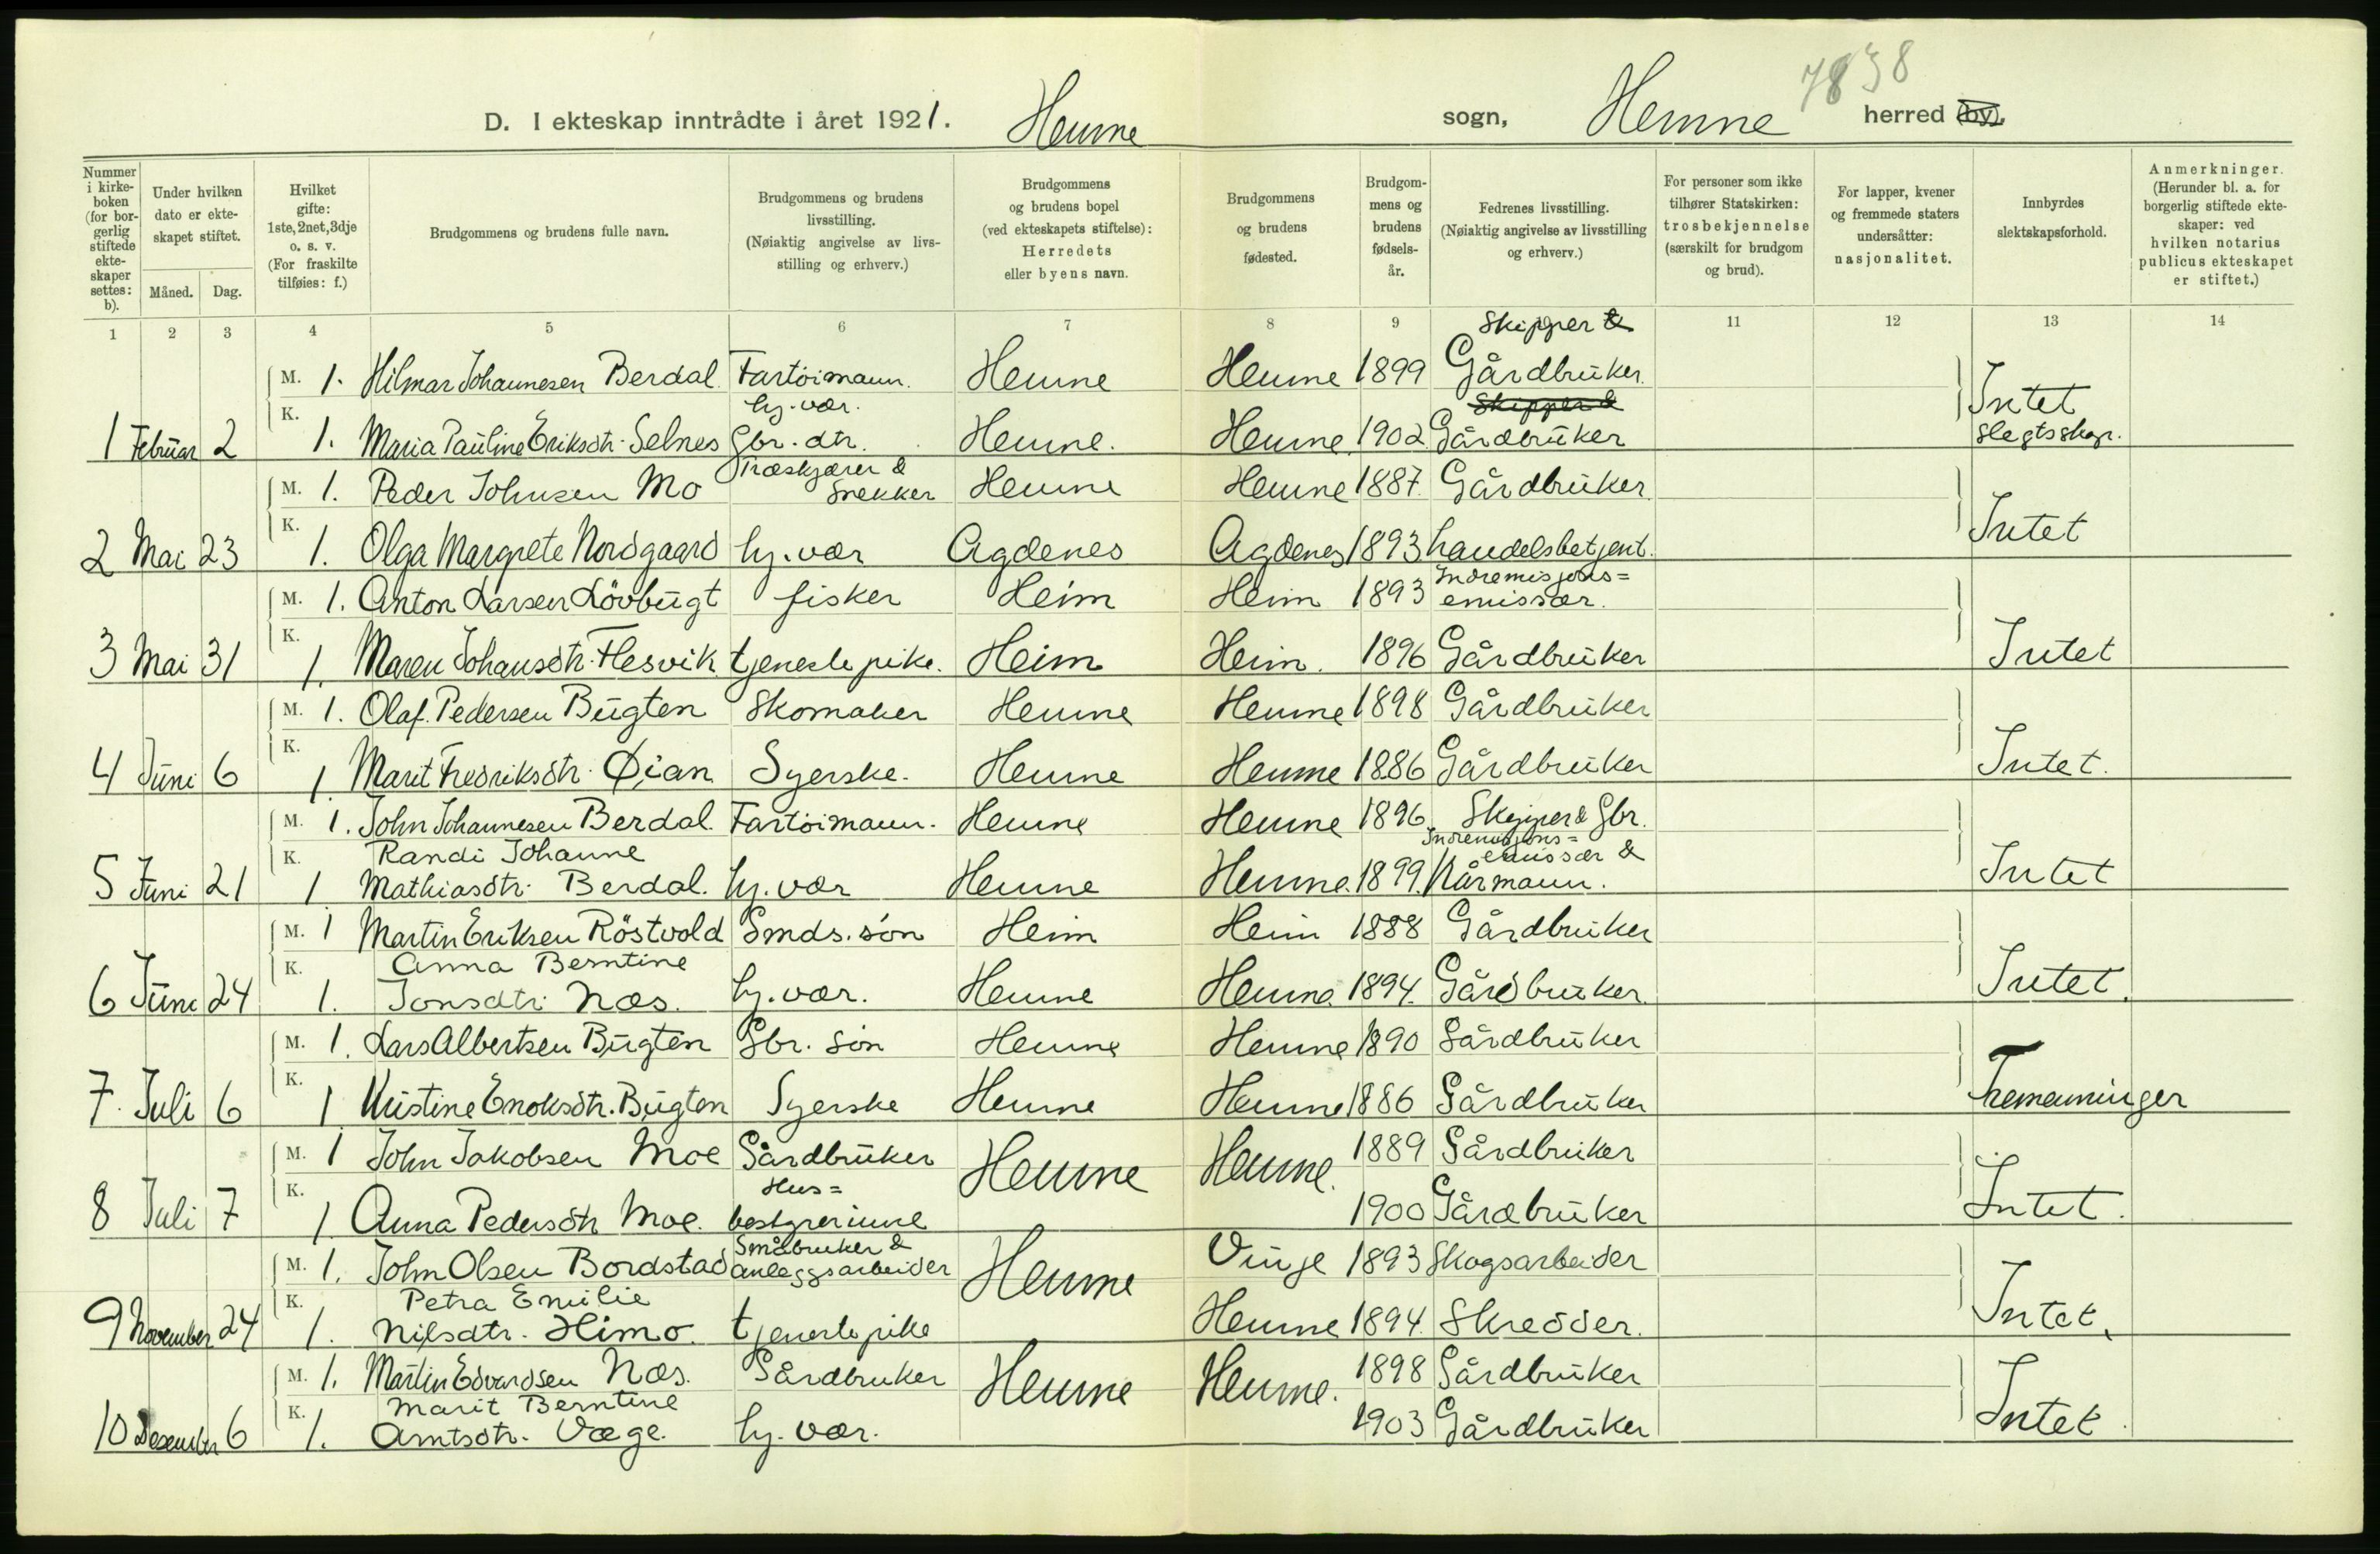 7838
D. I ekteskap inntrådte i året 1921. Hemne sogn, Hemne herred (by).
Nummer i kirkeboken (for borgerlig stiftede ekteskaper settes: b).
Under hvilken dato er ekteskapet stiftet.
Måned. Dag.
Hvilket gifte: 1ste, 2net, 3dje o. s. v. (For fraskilte tilføies: f.)
Brudgommens og brudens fulle navn.
Brudgommens og brudens livsstilling. (Nøiaktig angivelse av livsstilling og erhverv.)
Brudgommens og brudens bopel (ved ekteskapets stiftelse): Herredets eller byens navn.
Brudgommens og brudens fødested.
Brudgommens og brudens fødselsår.
Fedrenes livsstilling. (Nøiaktig angivelse av livsstilling og erhverv.)
For personer som ikke tilhører Statskirken: trosbekjennelse (særskilt for brudgom og brud).
For lapper, kvener og fremmede staters undersåtter: nasjonalitet.
Innbyrdes slektskapsforhold.
Anmerkninger. (Herunder bl. a. for borgerlig stiftede ekteskaper: ved hvilken notarius publicus ekteskapet er stiftet.)
1 2 3 4 5 6 7 8 9 11 12 13 14
M. 1. Hilmar Johannesen Berdal. Fartöimann. Hemne Hemne 1899 Skipper & Gårdbruker.
1 Februar 2 K. 1. Maria Pauline Eriksdtr. Selnes hj. vær. Gbr. dtr. Hemne. Hemne. 1902 Skipper & Gårdbruker Intet slegtsskap.
M. 1. Peder Johnsen Mo Træskjærer & Snekker Hemne Hemne 1887. Gårdbruker.
2 Mai 23 K. 1. Olga Margrete Nordgaard hj. vær Agdenes Agdenes 1893 handelsbetjent. Intet
M. 1. Anton Larsen Lövbugt fisker Heim Heim 1893 Indremisjons= emissær.
3 Mai 31 K. 1. Maren Johansdtr. Flesvik tjenestepike. Heim Heim. 1896 Gårdbruker Intet
M. 1. Olaf Pedersen Bugten Skomaker Hemne Hemne 1898 Gårdbruker
4 Juni 6 K. 1 Marit Fredriksdtr. Øian Syerske. Hemne Hemne 1886 Gårdbruker Intet.
M. 1. John Johannesen Berdal. Fartöimann. Hemne Hemne 1896. Skipper & Gbr.
5 Juni 21 K. 1 Randi Johanne Mathiasdtr. Berdal. hj. vær Hemne Hemne. 1899. Indremisjons= emissær & Kårmann. Intet
M. 1 Martin Eriksen Röstvold Smds. sön Heim Heim 1888 Gårdbruker
6 Juni 24 K. 1. Anna Berntine Jonsdtr. Næs. hj. vær. Hemne Hemne 1894. Gårdbruker. Intet.
M. 1. Lars Albertsen Bugten Gbr. sön Hemne Hemne 1890 Gårdbruker
7. Juli 6 K. 1 Kristine Enoksdtr. Bugten Syerske Hemne Hemne 1886 Gårdbruker Tremenninger
M. 1 John Jakobsen Moe Gårdbruker Hemne Hemne. 1889 Gårdbruker
8 Juli 7 K. 1. Anna Pedersdtr Moe. Hus= bestyrerinne 1900 Gårdbruker Intet.
M. 1. John Olsen Bordstad Småbruker & anleggsarbeider Hemne Vinje 1893 Skogsarbeider
9 November 24 K. 1. Petra Emilie Nilsdtr. Himo. tjenestepike Hemne 1894. Skredder. Intet.
M. 1. Martin Edvardsen Næs. Gårdbruker Hemne Hemne. 1898 Gårdbruker
10 Desember 6 K. 1. Marit Berntine Arntsdtr. Væge. hj. vær. 1903 Gårdbruker Intet.